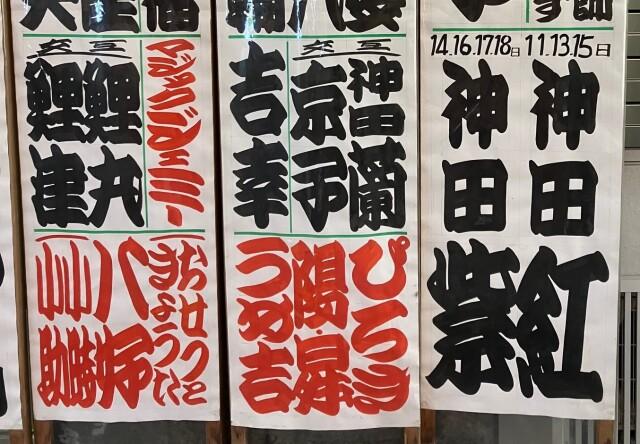 11.13.15日
神田紅
14.16.17.18日
神田紫
交互
神田蘭
京子
吉幸
ぴろき
陽・昇
うめ吉
マジックジェミー
交互
鯉丸
鯉津
おせつときょうた